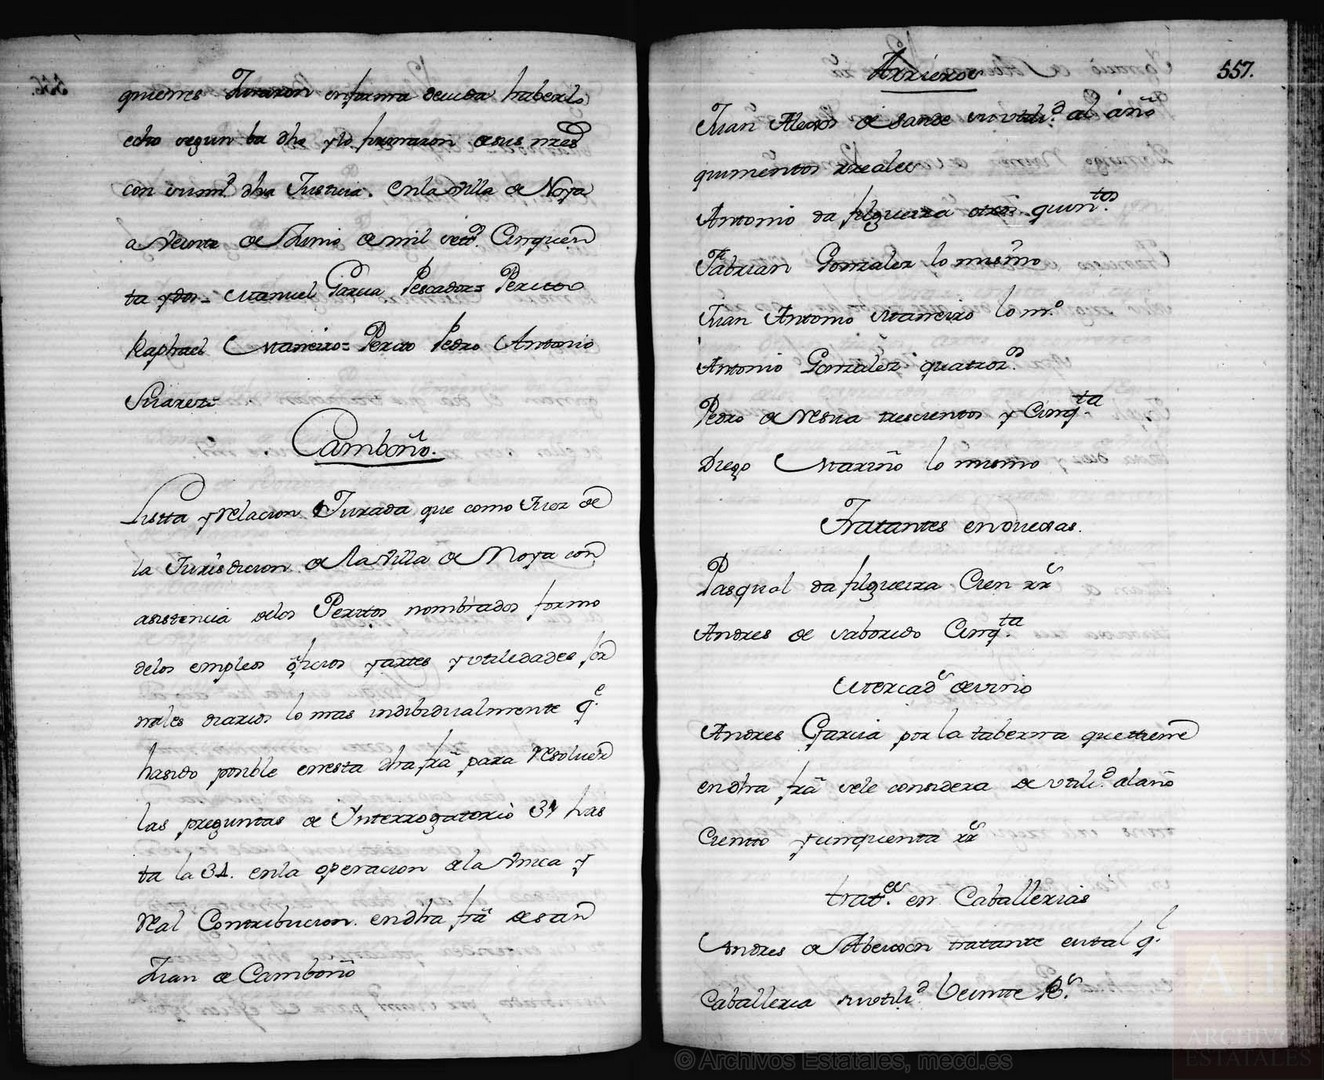 quienes Juraron enforma devida haberlo
echo segun ba dho y lo firmaron desus mrds
con su mrd dha Justicia. enla villa de Noya
a Veinte de Junio de mil settos Cinquen
ta y dos = Manuel Garcia Pescador = Perito
Raphael Maneiro = Perito Pedro Antonio
Suarez =
Camboño.
Listta y Relacion Jurada que como Juez de
la Jurisdicion de la Villa de Noya con
asistencia delos Peritos nombrados formo
delos empleos oficios y artes y utilidades jor
nales diarios lo mas indibidualmente q.e
hasido posible enesta dha fra para resolver
las preguntas de Ynterrogatorio 31 has
ta la 34. enla operacion dela Vnica y
Real Contribucion. endha fra de san
Juan de Camboño
Arrieros
557.
Juan Alonso de sande su utili.d al año
quinientos reales
Antonio da filgueira otros quin.tos
Fabrian Gonzalez lo mismo
Juan Antonio Maneiro lo m.o
Antonio Gonzalez quatroz.s
Pedro de Nesua trescientos y Cinq.ta
Diego Mariño lo mismo
Tratantes en ovejas.
Pasqual da filgueira Cien rs
Andres de saborido Cinq.ta
Mercad.r de vino
Andres Garcia por la taberna que tiene
endha fra sele considera de utili.d al año
Ciento y cinquenta rs
trat.es en Caballerias
Andres de Abeijon tratante en tal q.l
Caballeria su utili.d beinte R.s
© Archivos Estatales, mecd.es
AE
ARCHIVOS
ESTATALES